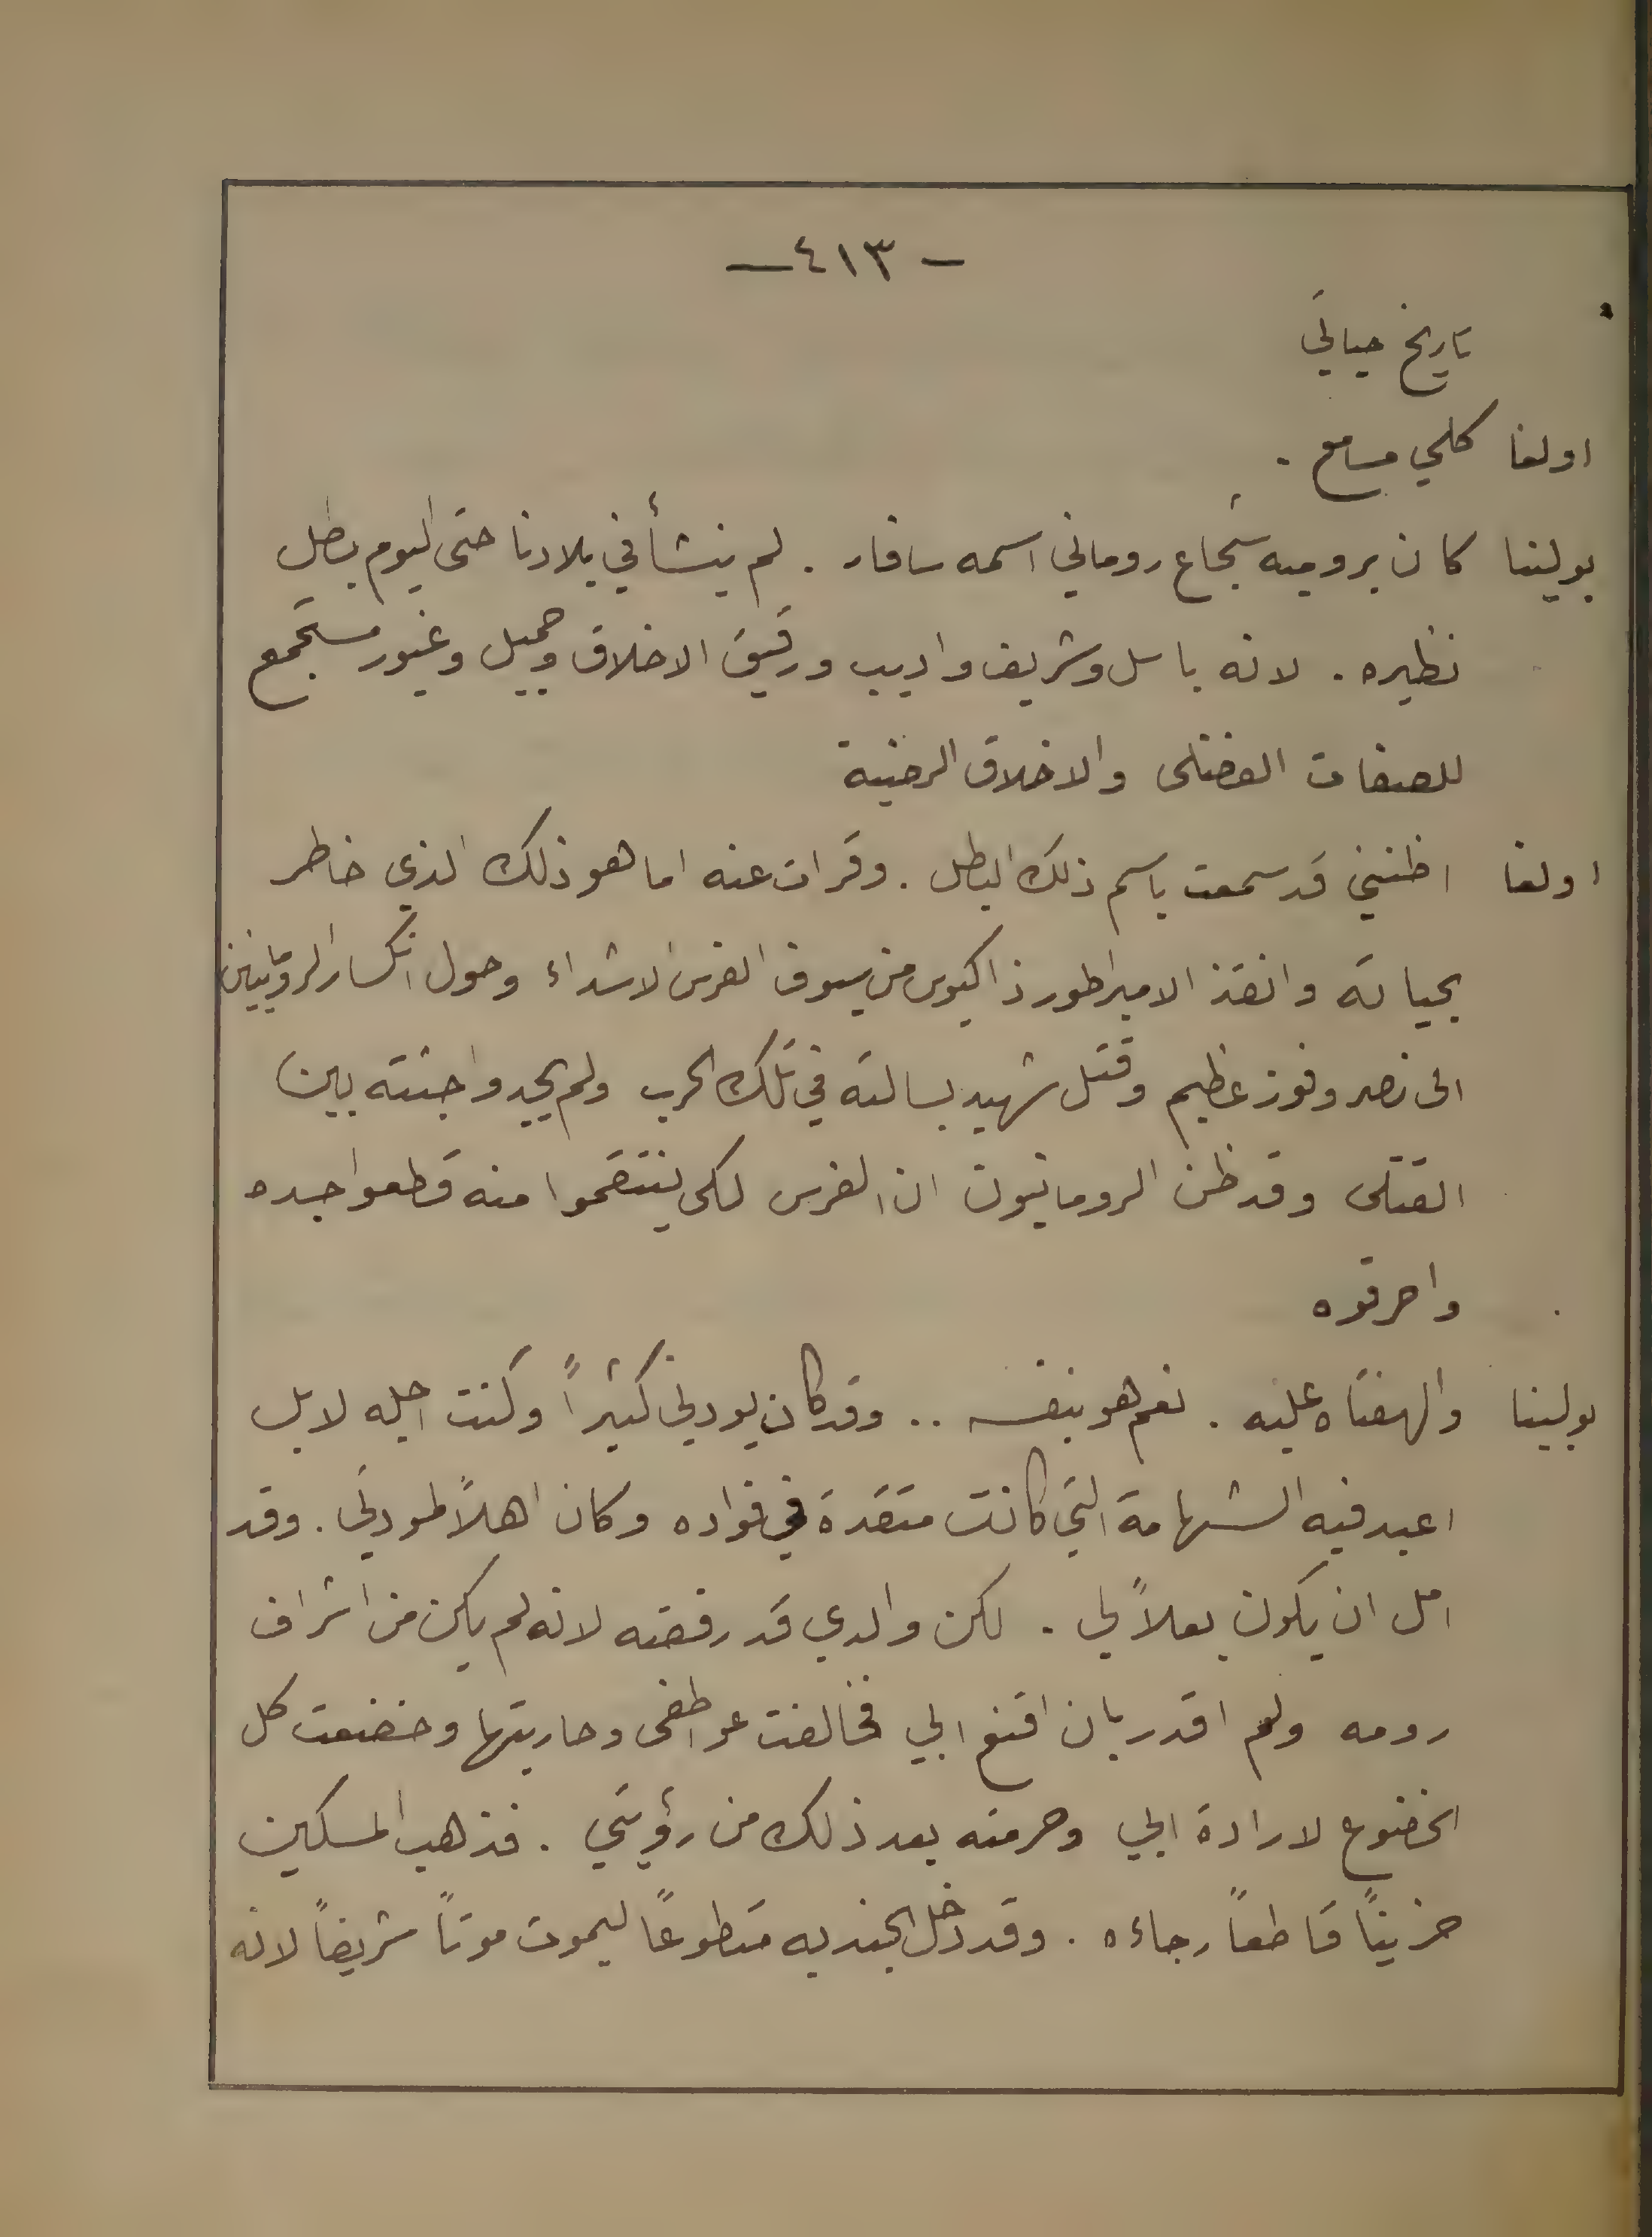 — ٤١٣ —
تاريخ حياتي
اولفا كلي مسامع .
بولينا كان برومیه شجاع روماني اسمه سافار . لم ينشأ في بلادنا حتى اليوم بطل
نظيره . لانه باسل وشريف واديب ورقيق الاخلاق وجميل وغيور مستجمع
للصفات الفضلى والاخلاق الرضية
اولفا اظنني قد سمعت باسم ذلك البطل . وقرات عنه اما هو ذلك الذي خاطر
بحياته وانقذ الامبراطور ذاكيوس من سيوف الفرس الاشداء وحول انكسار الرومانيين
الى نصر وفوز عظيم وقتل شهيد بسالته في تلك الحرب ولم يجدوا جثته بين
القتلى وقد ظن الرومانيون ان الفرس لكي ينتقموا منه قطعوا جسده
واحرقوه
بولينا والهفتاه عليه . نعم هو بنفسه .. وقد كان يودني كثيراً وكنت اجله لا بل
اعبد فيه الشهامة التي كانت متقدة في فواده وكان اهلاً لمودتي . وقد
امل ان يكون بعلاً لي . لكن والدي قد رفضه لانه لم يكن من اشراف
رومه ولم اقدر بان اقنع ابي فخالفت عواطفي وحاربتها وخضعت كل
الخضوع لارادة ابي وحرمته بعد ذلك من رؤيتي . فذهب المسكين
حزيناً قاطعاً رجاءه . وقد دخل الجنديه متطوعاً ليموت موتاً شريفاً لانه